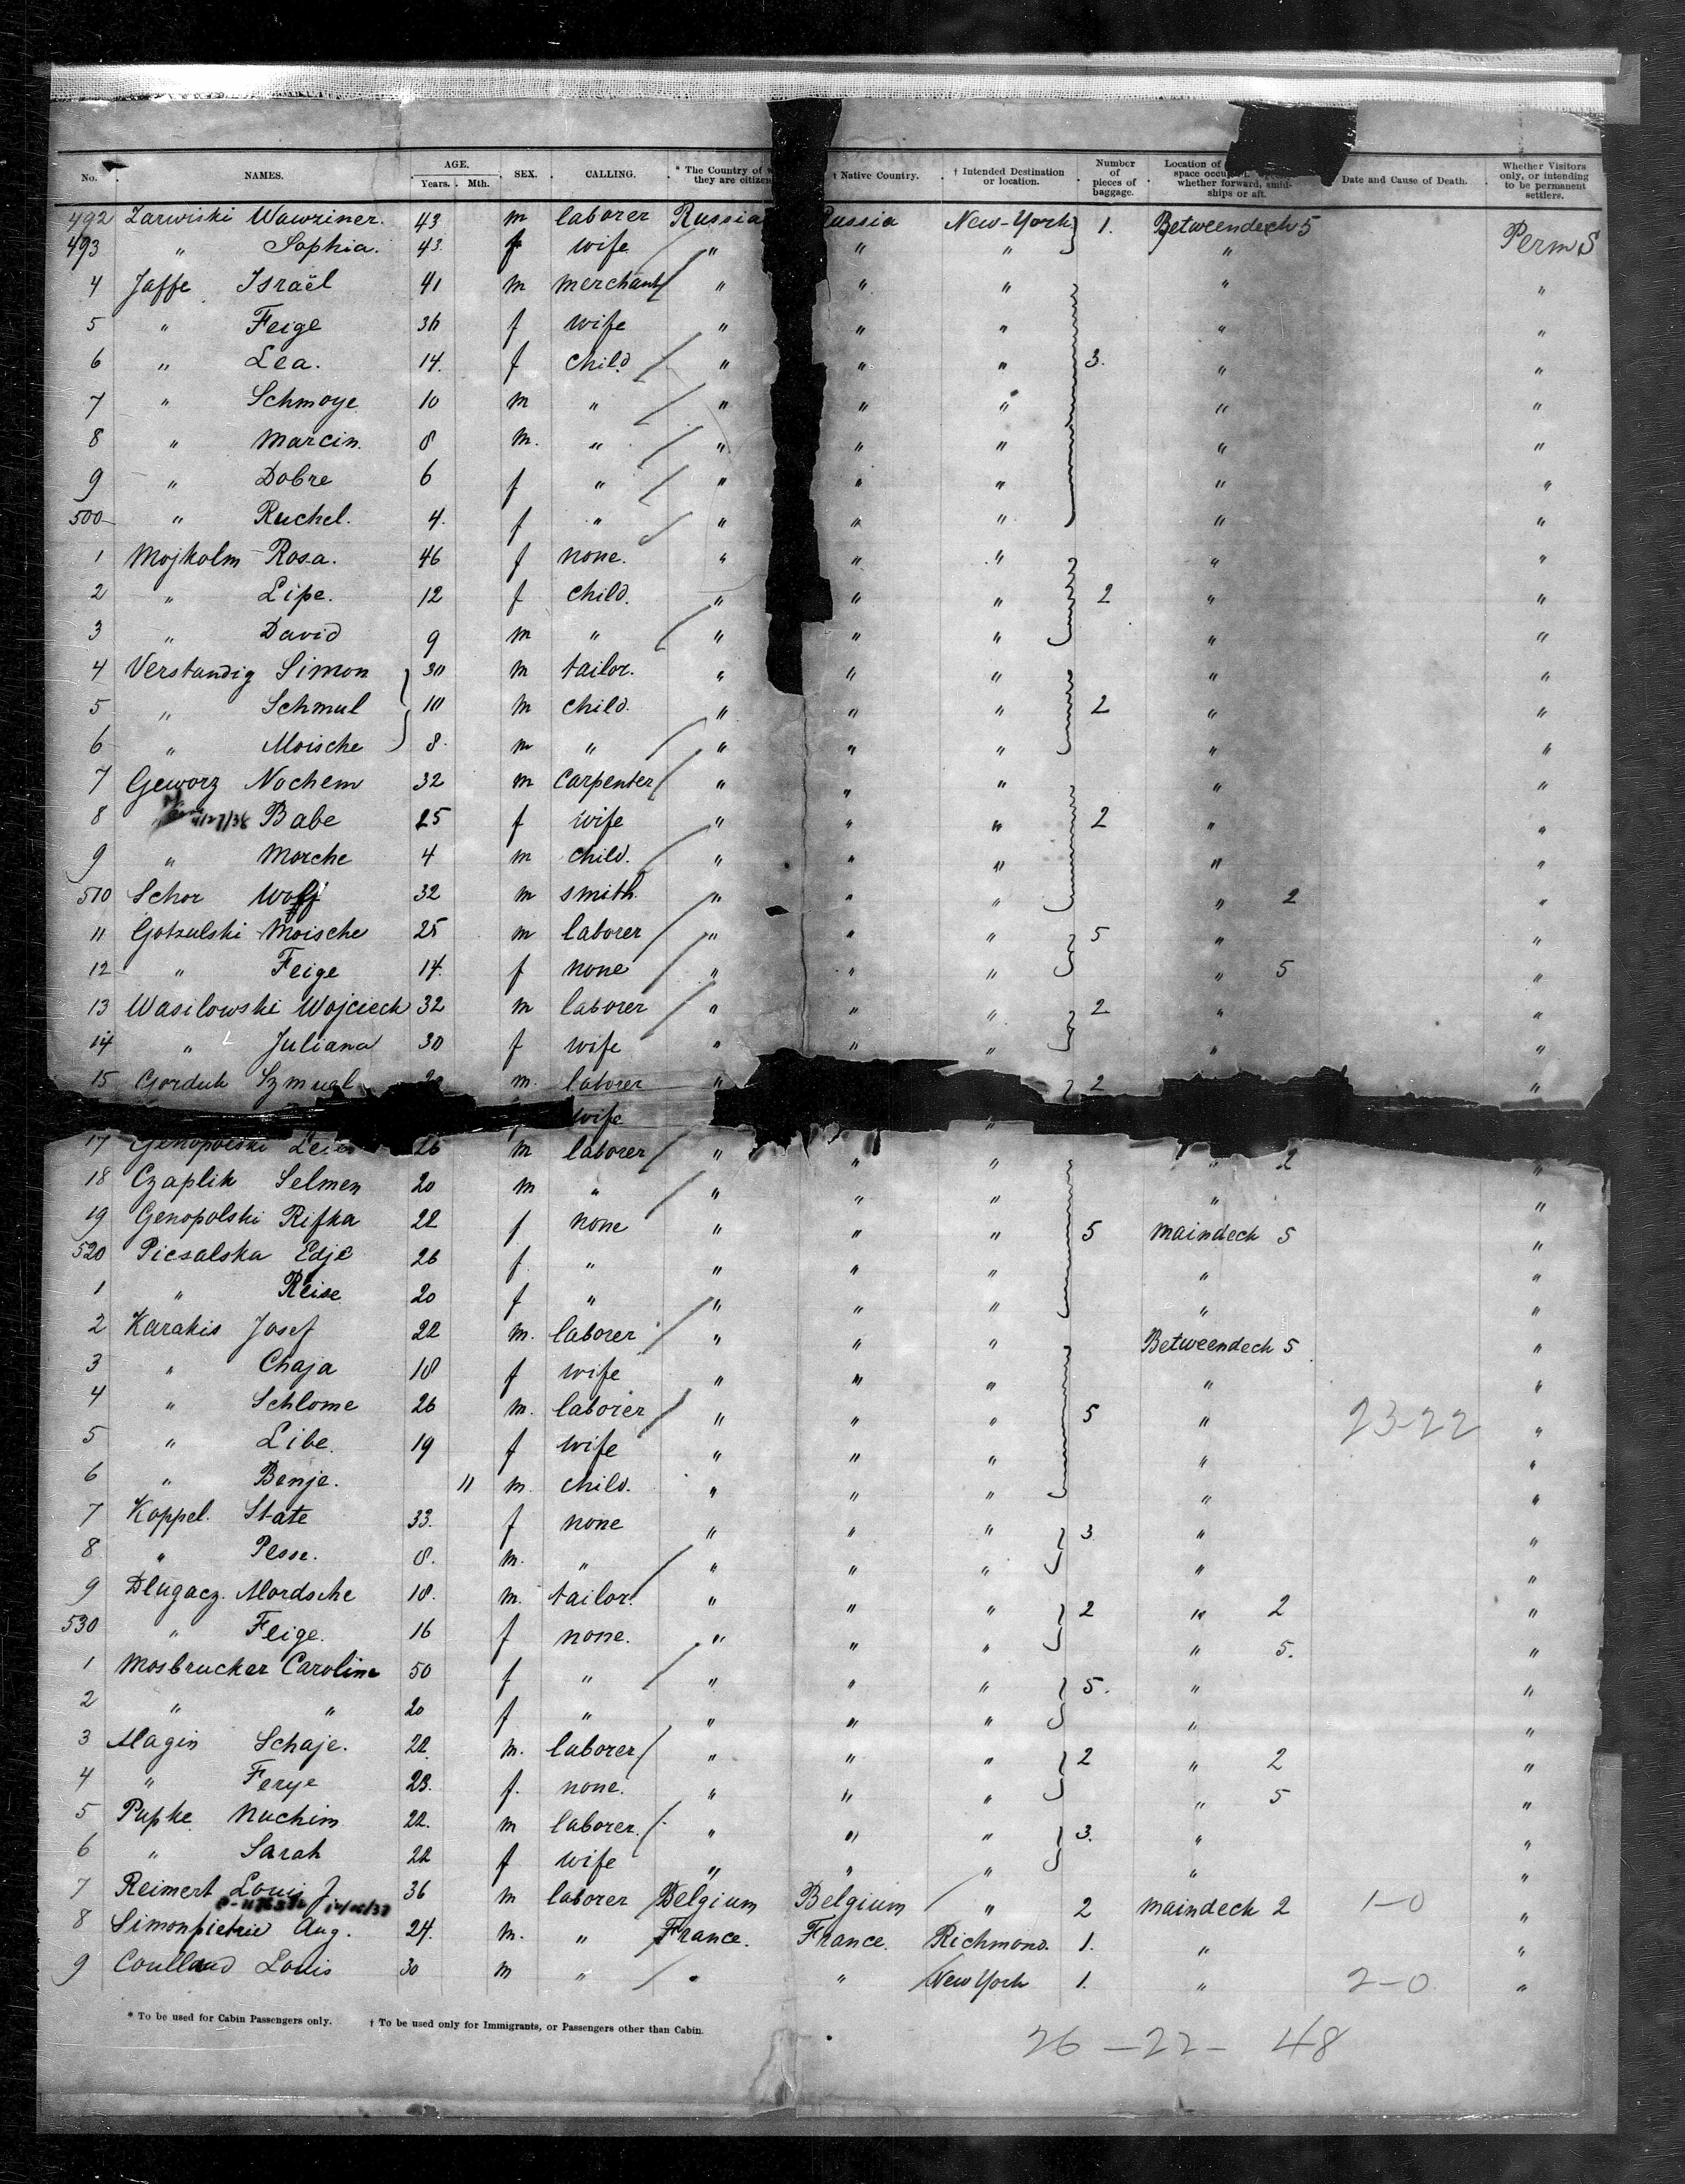 No. NAMES. AGE. Years. Mth. SEX. CALLING. * The Country of they are citizen † Native Country. † Intended Destination or location. Number of pieces of baggage. Location of space whether forward, amid-ships or aft. Date and Cause of Death. Whether Visitors only, or intending to be permanent settlers.
492 Zarwiski Wawriner. 43 m laborer Russia Russia New-York 1. Betweendeck 5
493 " Sophia. 43 f wife " " " " Perm S
4 Jaffe Israël 41 m merchant " " " " "
5 " Feige 36 f wife " " " " "
6 " Lea. 14. f child " " " 3. " "
7 " Schmoye 10 m " " " " " "
8 " Marcin. 8 m. " " " " " "
9 " Dobre 6 f " " " " " "
500 " Ruchel. 4. f " " " " " "
1 Mojkolm Rosa. 46 f none. " " " " "
2 " Lipe. 12 f child. " " " 2 " "
3 " David 9 m " " " " " "
4 Verstandig Simon 30 m tailor. " " " " "
5 " Schmul 10 m child. " " " 2 " "
6 " Moische 8. m " " " " " "
7 Geworz Nochem 32 m carpenter " " " " "
8 Babe 25 f wife " " " 2 " "
9 " Morche 4 m child. " " " " "
510 Schor Wolf 32 m smith. " " " " 2 "
11 Gotzulski Moische 25 m laborer " " " 5 " "
12 " Feige 14. f none " " " " 5 "
13 Wasilowski Wojciech 32 m laborer " " " 2 " "
14 " Juliana 30 f wife " " " " "
15 Gorduk Szmugl m. laborer " 2 "
wife "
17 Genopolski 26 m laborer " " " " 2 "
18 Czaplik Selmen 20 m " " " " " "
19 Genopolski Rifka 22 f none " " " 5 maindeck 5 "
520 Piesalska Edje 26 f " " " " " "
1 " Reise 20 f " " " " " "
2 Karakis Josef 22 m. laborer " " " Betweendeck 5 "
3 " Chaja 18 f wife " " " " "
4 " Schlome 26 m. laborer " " " 5 " 23-22 "
5 " Libe. 19 f wife " " " " "
6 " Benje. 11 m. child. " " " " "
7 Koppel. State 33. f none " " " 3 " "
8 " Pesse. 8. m. " " " " " "
9 Dlugacz. Mordsche 18. m. tailor. " " " 2 " 2 "
530 " Feige. 16 f none. " " " " 5. "
1 Mosbrucker Caroline 50 f " " " " 5. " "
2 " " 20 f " " " " " "
3 Magin Schaje. 22. m. laborer " " " 2 " 2 "
4 " Ferye 23. f. none. " " " " 5 "
5 Pupke Nuchim 22. m laborer. " " " 3. " "
6 " Sarah 22 f wife " " " " "
7 Reimert Louis J 36 m laborer Belgium Belgium " 2 maindeck 2 1-0 "
8 Simonpietrie Aug. 24. m. " France. France. Richmond. 1. " "
9 Coullaud Louis 30 m " " " New York 1. " 2-0 "
* To be used for Cabin Passengers only. † To be used only for Immigrants, or Passengers other than Cabin.
26 - 22 - 48